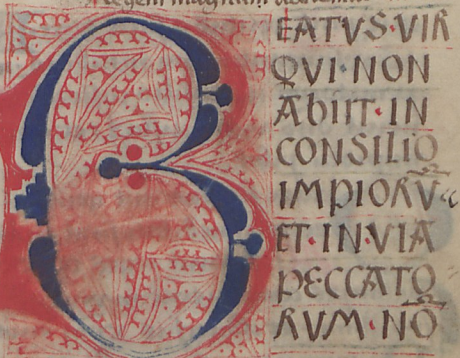 Regem magnum
BEATVS·VIR
QVI·NON
AbIIT·IN
CONSILIO
IMPIORV
ET·IN·VIA
PECCATO
RVM·NO